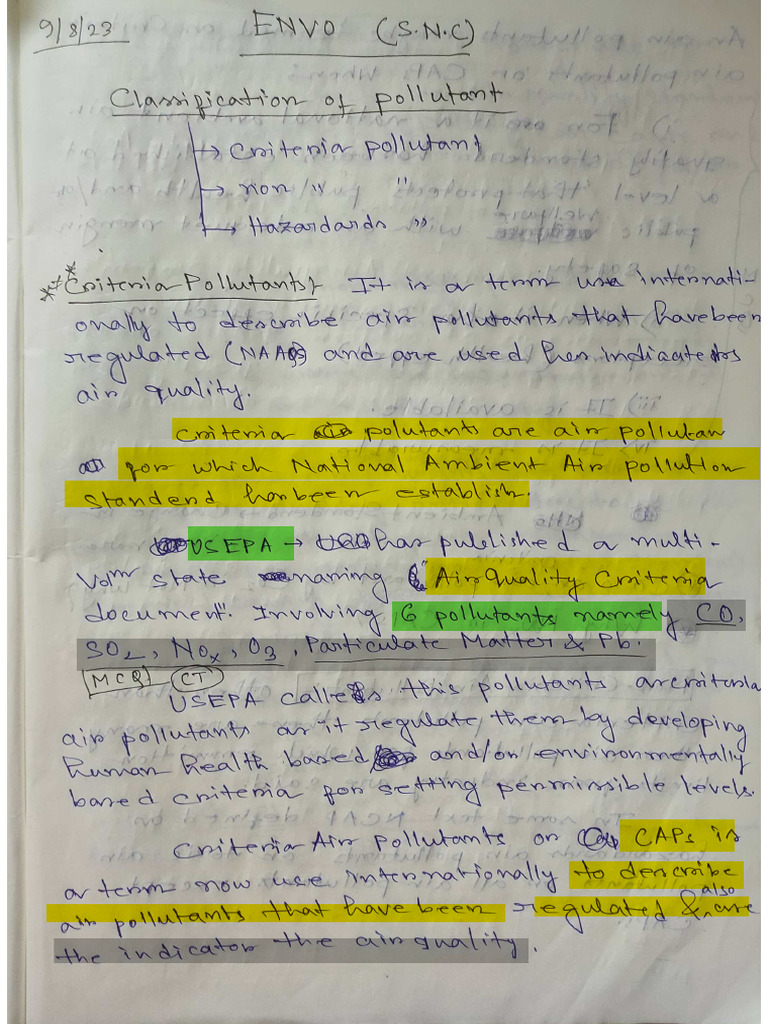 9/8/23 ENVO (S.N.C)
Classification of pollutant
→ Criteria pollutant
→ non " "
→ Hazardards "
** Criteria Pollutants} It is a term use internati-
onally to describe air pollutants that havebeen
regulated (NAAQS) and are used
air quality.
Criteria polutants are air pollutan
for which National Ambient Air pollution
standend hasbeen establish.
USEPA → has published a multi-
Volm state naming "Air Quality Criteria
document". Involving 6 pollutants namely CO,
SO2, NOx, O3, Particulate Matter & Pb.
MCQ CT
USEPA calls this pollutants arecriteria
air pollutants as it regulate them by developing
human health based and/or environmentally
based criteria for setting permissible levels.
Criteria Air Pollutants or CAPs is
a term now use internationally to describe
air pollutants that have been regulated & also are
the indicator the air quality.